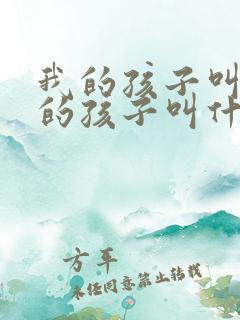 我的孩子叫
的孩子叫什
方平
未经同意禁止转载